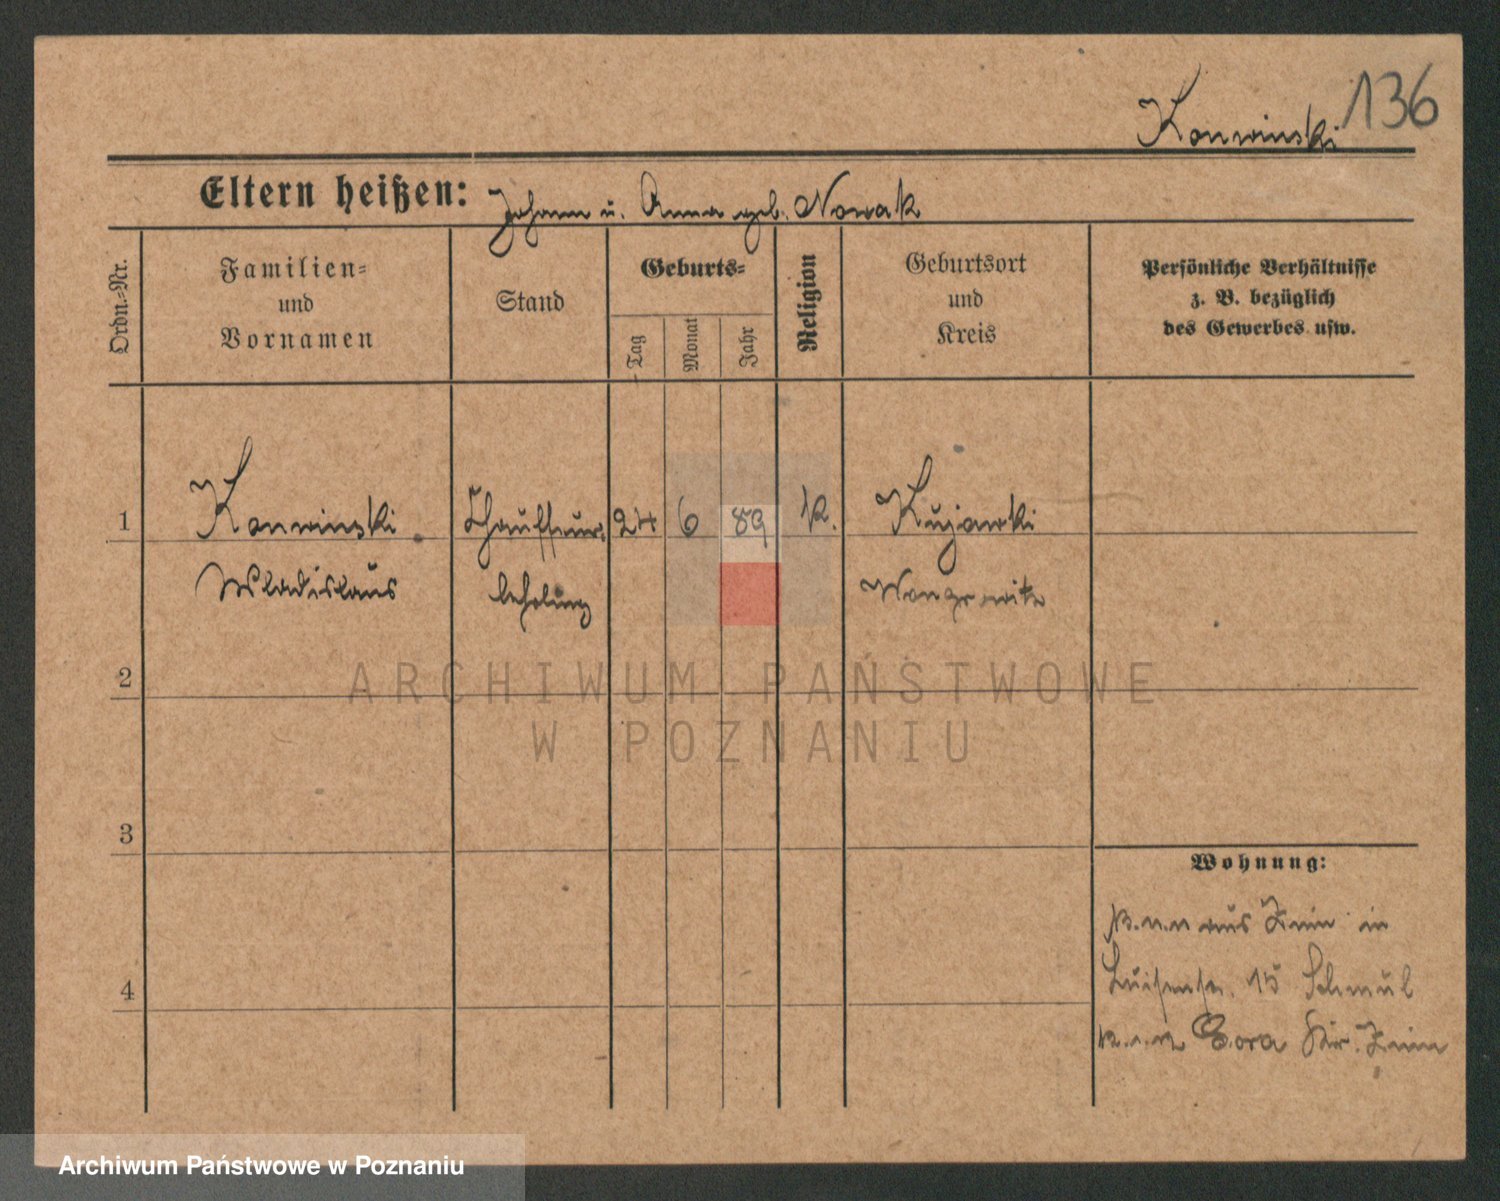 136
Konwinski
Eltern heißen: Johann u. Anna geb. Nowak
Ordn.=Nr.
Familien=
und
Vornamen
Stand
Geburts=
Tag
Monat
Jahr
Religion
Geburtsort
und
Kreis
Persönliche Verhältnisse
z. B. bezüglich
des Gewerbes usw.
1
Konwinski Chauffeur 24 6 89 k. Kujawki
Wladislaus Wongrowitz
2
3
4
Wohnung:
aus Znin in
Luisenstr. 15
Gora Kr. Znin
ARCHIWUM PAŃSTWOWE
W POZNANIU
Archiwum Państwowe w Poznaniu